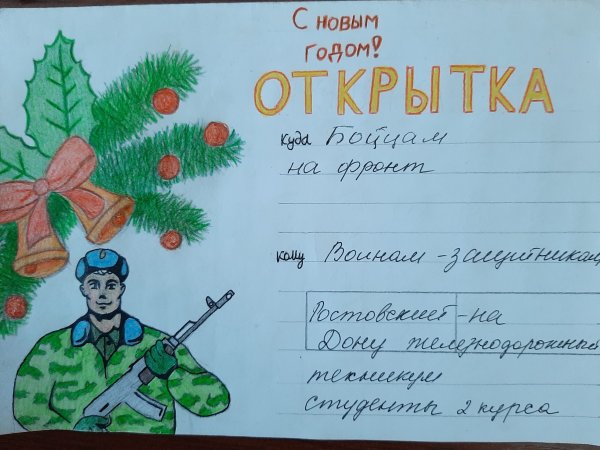 С новым
годом!
ОТКРЫТКА
куда Бойцам
на фронт
кому Воинам-защитникам
Ростовский-на
Дону железнодорожный
техникум
студенты 2 курса